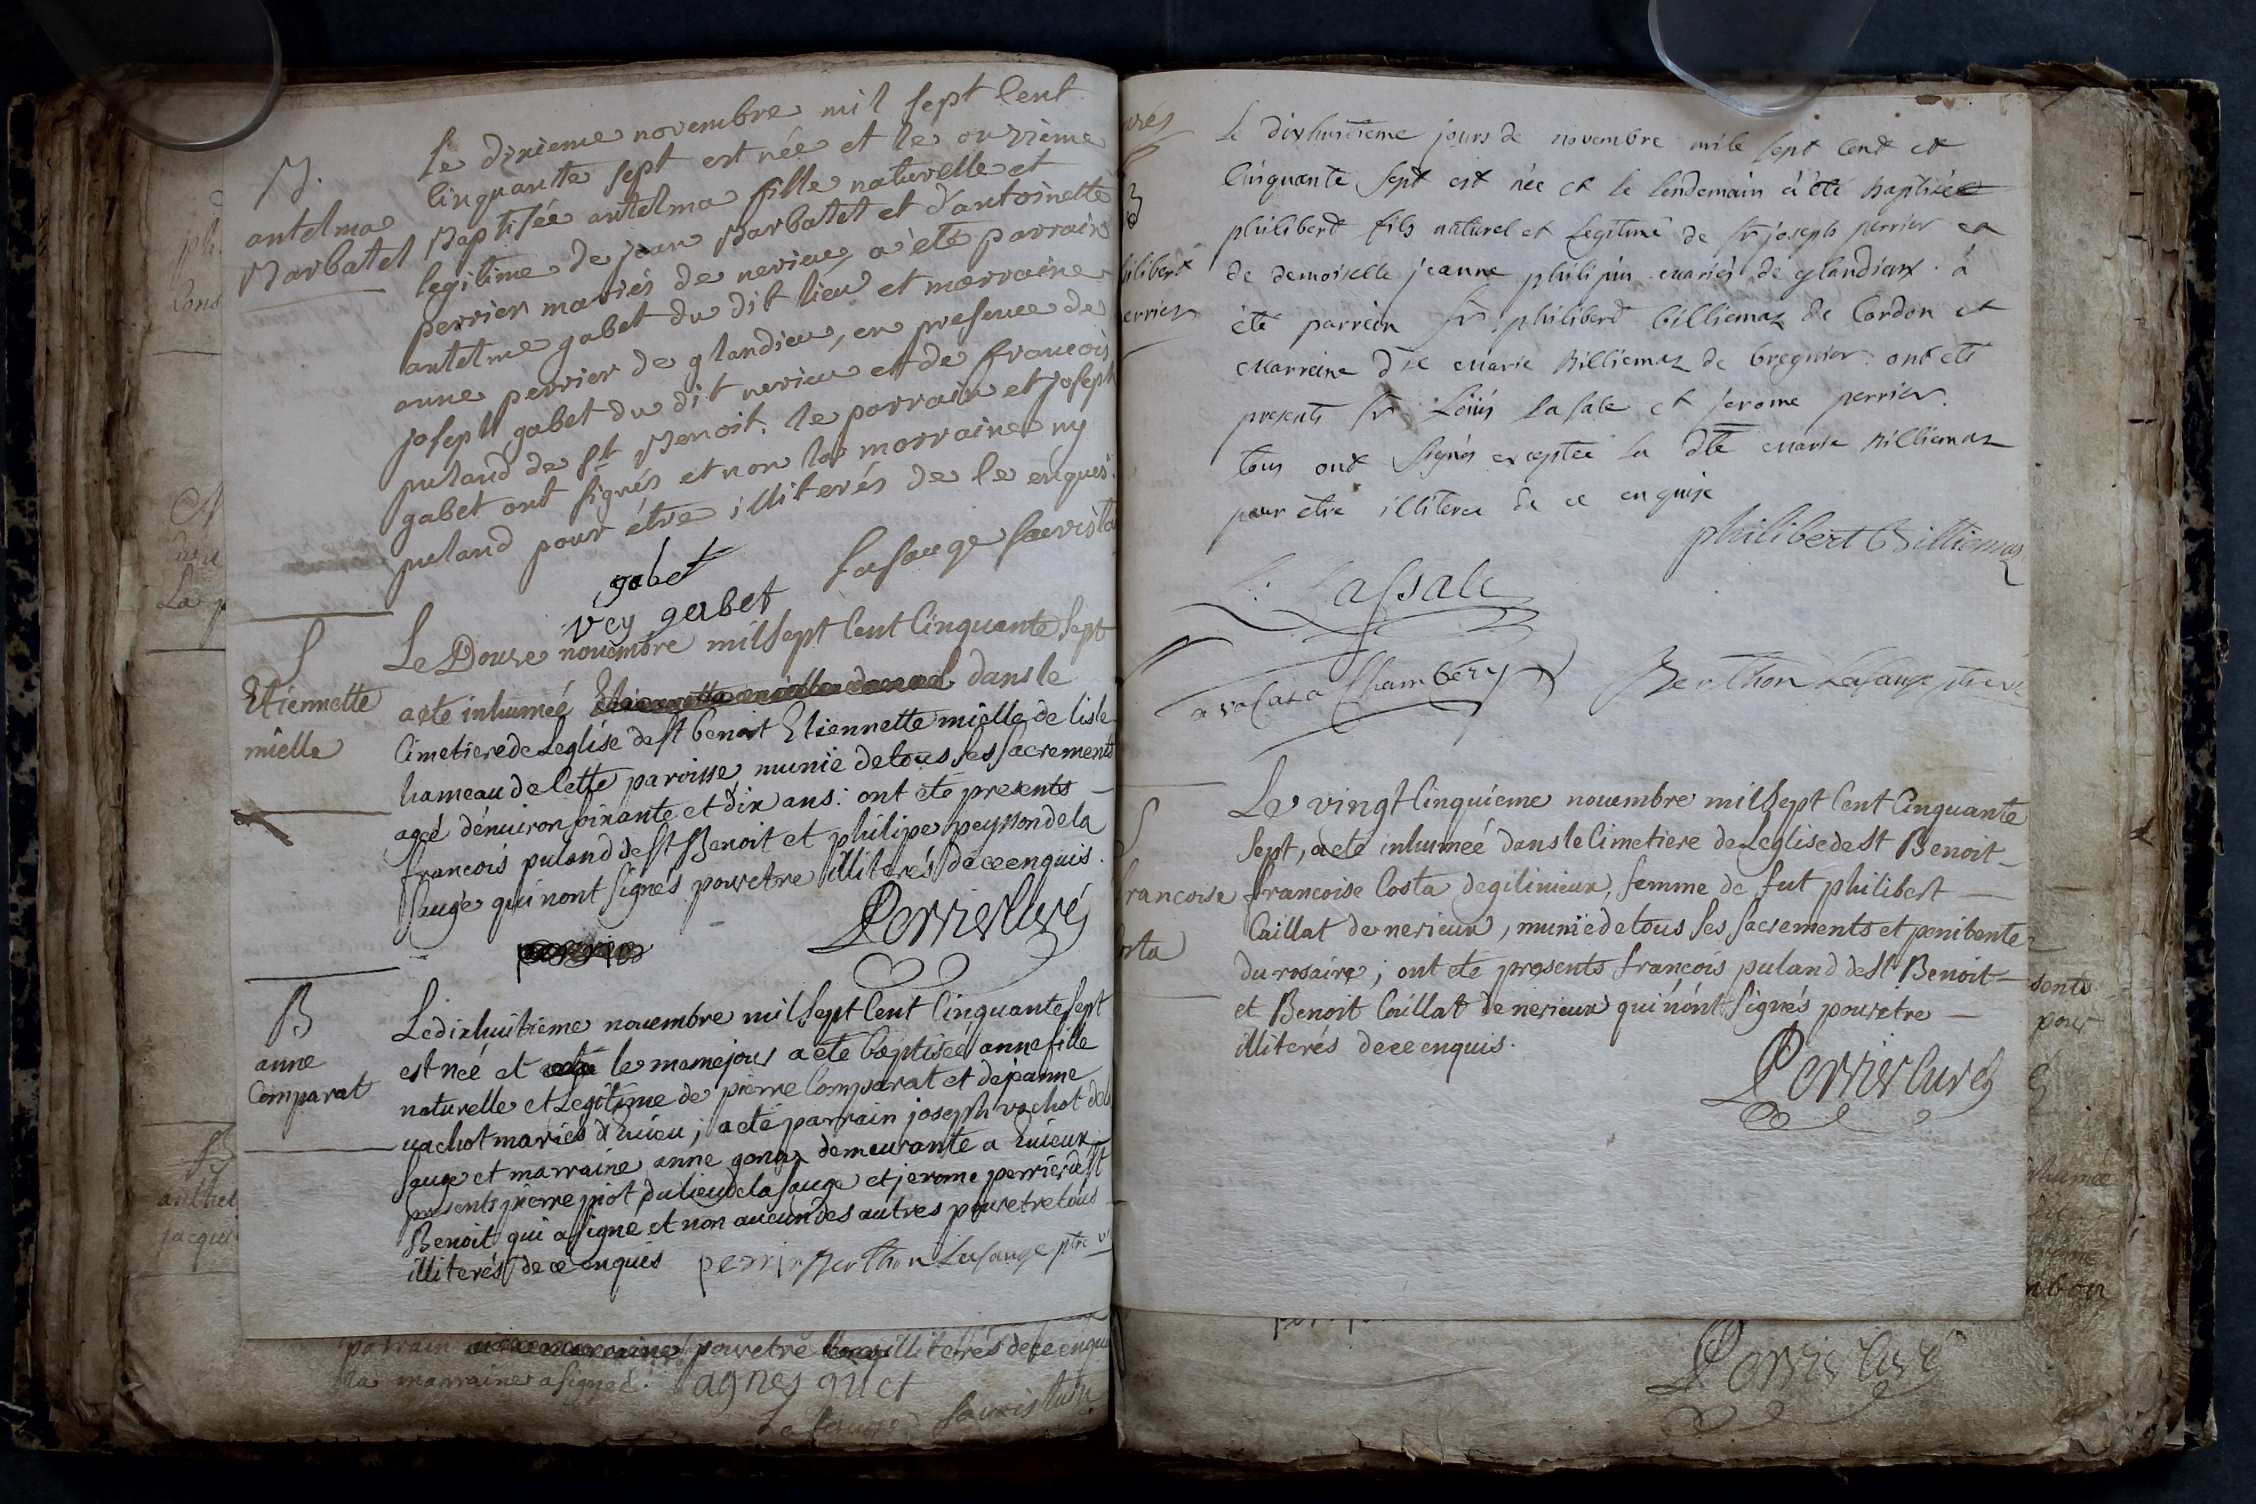 le dixieme novembre mil sept cent
B.
cinquante sept est née et le onzième
antelma
Barbatet
Baptisée antelma fille naturelle et
legitime de jean Barbatet et d'antoinette
perrier mariés de nerieu, a été parrain
antelme gabet du dit lieu et marraine
anne perrier de glandieu, en presence de
joseph gabet du dit nerieu et de francois
puland de st Benoit. le parrain et joseph
gabet ont signés et non la marraine ny
puland pour être illiterés de ce enquis.
gabet
vey gabet
Lasauge
S
Etiennette
mielle
Le Douse novembre mil sept cent cinquante sept
a eté inhumeé dans le
cimetiere de Leglise de st benoit Etiennette mielle de lisle
hameau de cette paroisse, munie de tous ses sacrements
ageé dénuiron soixante et dix ans: ont eté presents
francois puland de st Benoit et philipe peysson de la
sauge qui nont signés pour etre illiterés de ce enquis.
Perrier curé
B
anne
Comparat
Le dixhuitieme nouembre mil sept cent cinquante sept
est neé et le meme jour a eté baptiseé anne fille
naturelle et Legitime de pierre Comparat et de jeanne
uachot mariés d'Luieu; a eté parrain joseph vachot de la
sauge et marraine anne gonaz demeurante a Luieux,
presents pierre piot du lieu de la sauge et jerome perrier de st
Benoit qui a signe et non aucun des autres pour etre tous
illiterés de ce enquis perrier Berthon Lasauge ptre vi
parrain pour etre illiterés de ce enquis
la marraine a signeé. agnes guet
Philibert
perrier
Le dixhuitieme jours de novembre mile sept cent et
Cinquante sept est née et le lendemain à èté baptisée
philibert fils naturel et Legitime de sr joseph perrier et
de demoiselle jeanne philipin mariés de glandieux. à
èté parrein sr philibert billiemaz de Cordon et
marreine dlle marie Billiemaz de bregnier. ont eté
presents sr Loüis Lasale et jerome perrier.
tous ont signés exceptée la dlle marie Billiemaz
pour etre illiterée de ce enquise
philibert Billiemaz
L: Lassale
Chambery
Berthon Lasauge ptre vi
S
francoise
Costa
Le vingt cinquieme nouembre mil sept cent cinquante
sept, a eté inhumeé dans le Cimetiere de Leglise de st Benoit
francoise Costa de gilinieux, femme de fut philibert
Caillat de nerieux, munie de tous ses sacrements et penitente
du rosaire; ont eté presents francois puland de st Benoit
et Benoit Caillat de nerieux qui nont signés pour etre
illiterés de ce enquis.
Perrier curé
sents
pour
Perrier curé